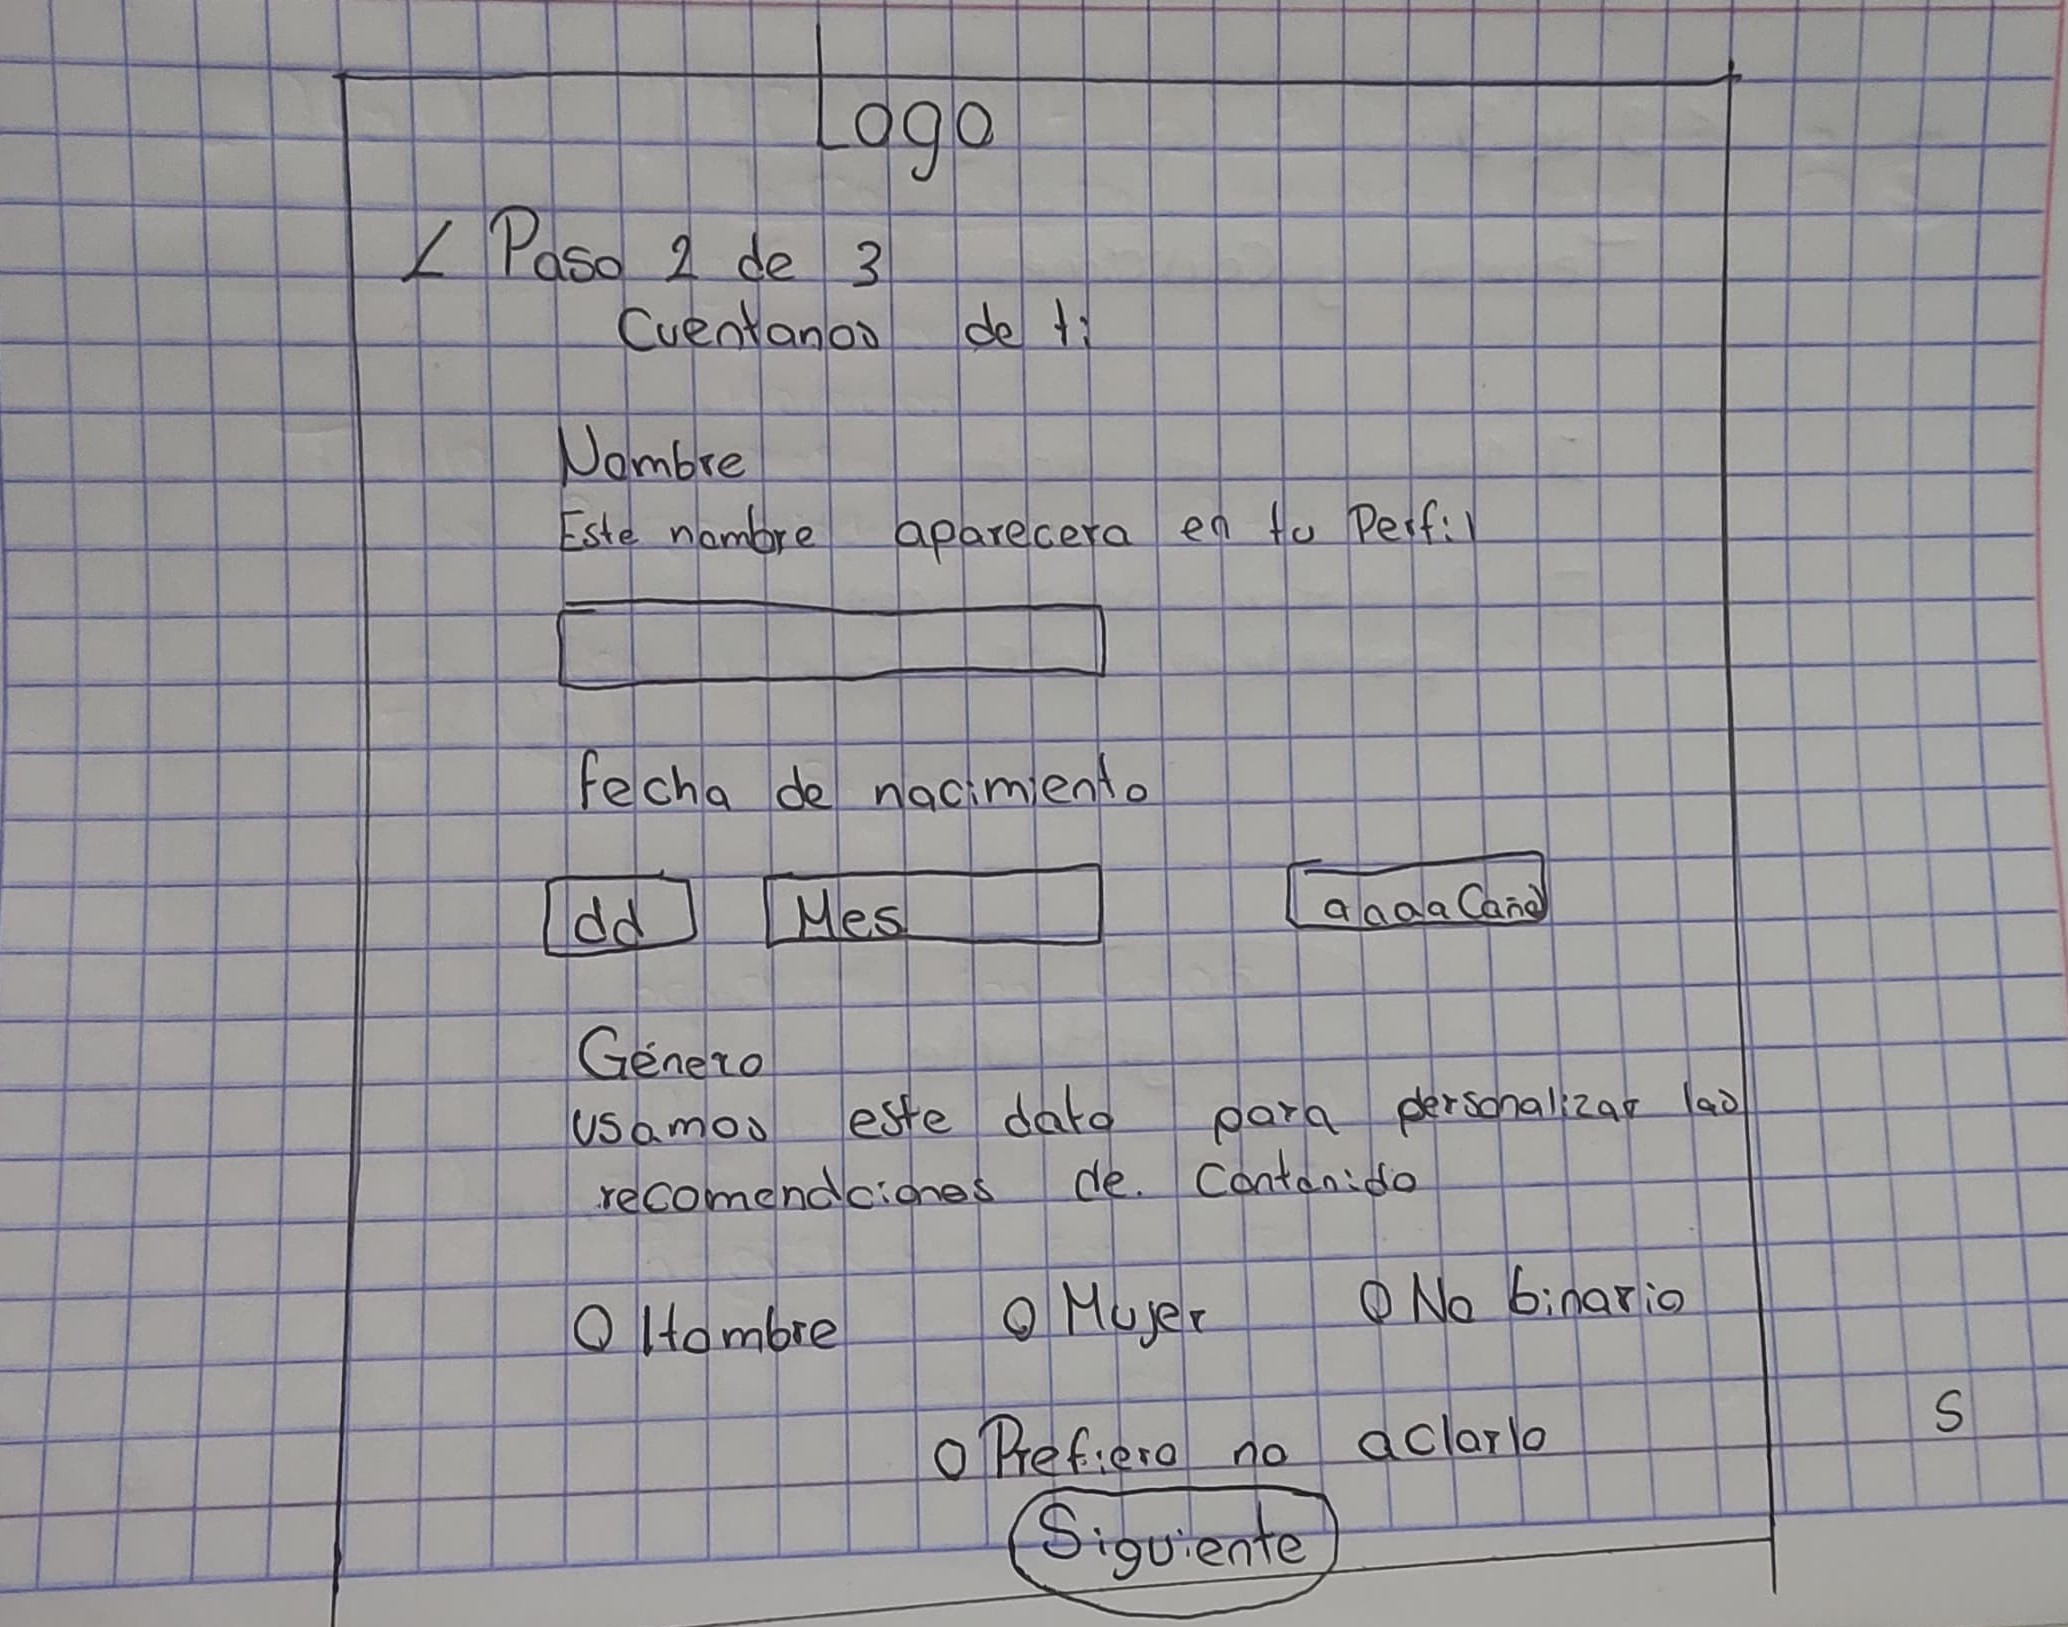 Logo
< Paso 2 de 3
Cuentanos de ti
Nombre
Este nombre aparecera en tu Perfil
fecha de nacimiento
dd Mes aaaa (año)
Género
usamos este dato para personalizar las
recomendciones de contenido
O Hombre O Mujer O No binario
S
O Prefiero no aclarlo
Siguiente